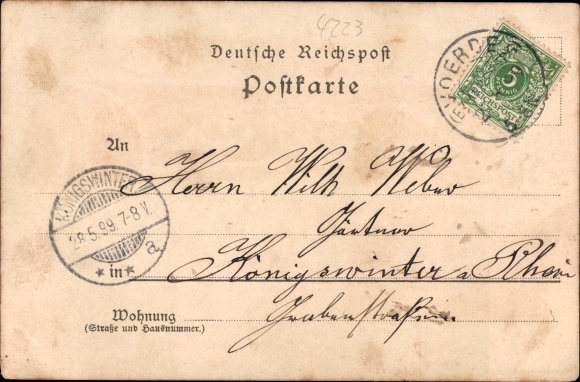 4223
Deutsche Reichspost
Postkarte
VOERDE
5
PFENNIG
REICHSPOST
An
Herrn Wilh Weber
Gärtner
KÖNIGSWINTER
28.5.99. 7-8 V.
a
in Königswinter a Rhein
Grabenstraße.
Wohnung
(Straße und Hausnummer.)